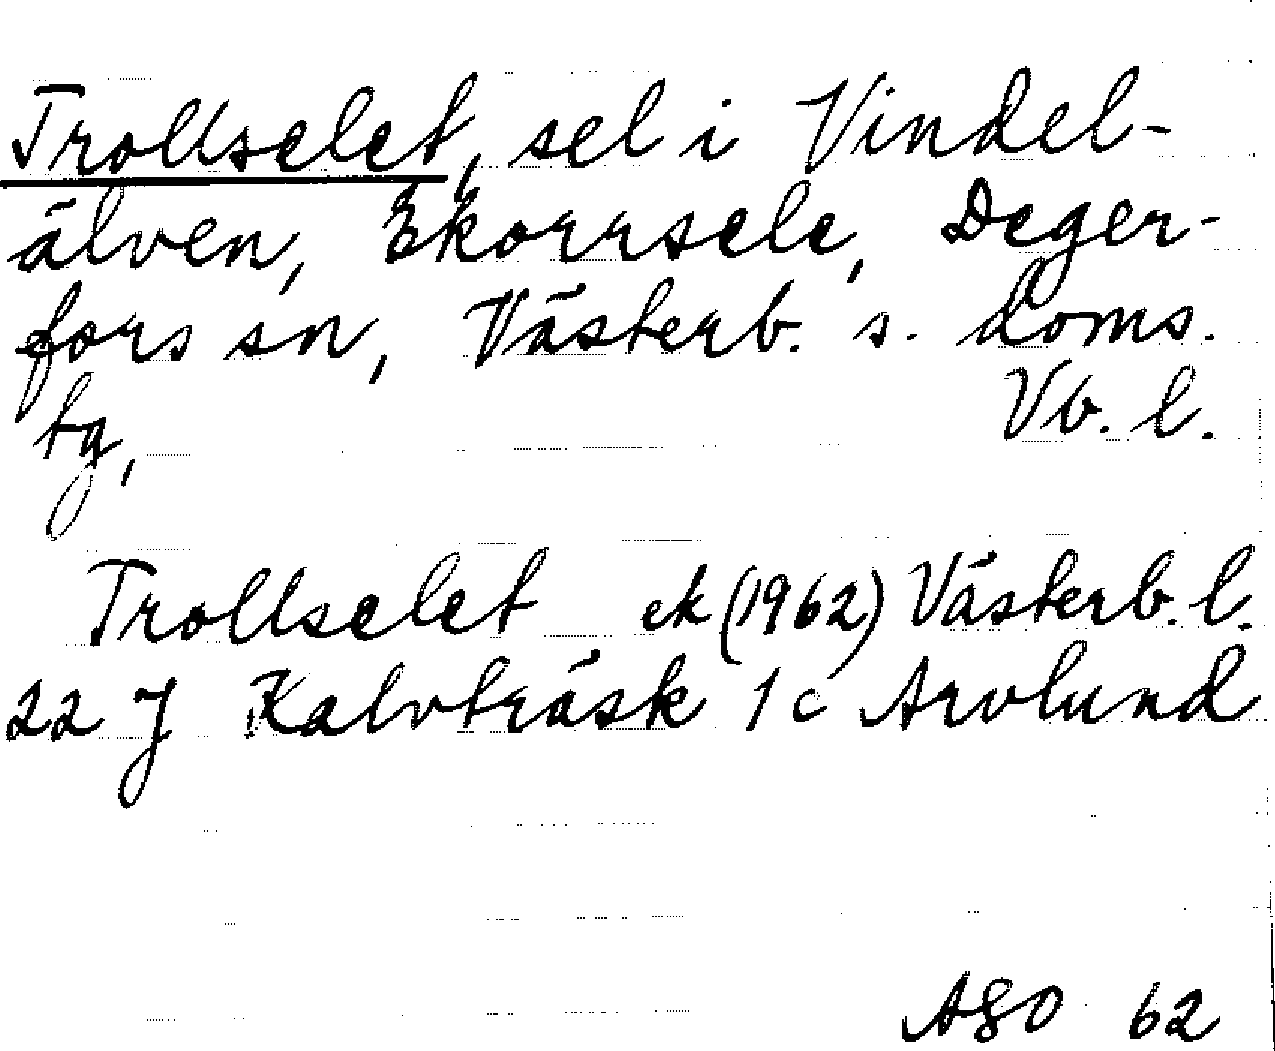 Trollselet, sel i Vindel-
älven, Ekorrsele, Deger-
fors sn, Västerb. s. doms.
tg, Vb. l.
Trollselet ek (1962) Västerb. l.
22 J Kalvträsk 1 c Arvlund
ASO 62